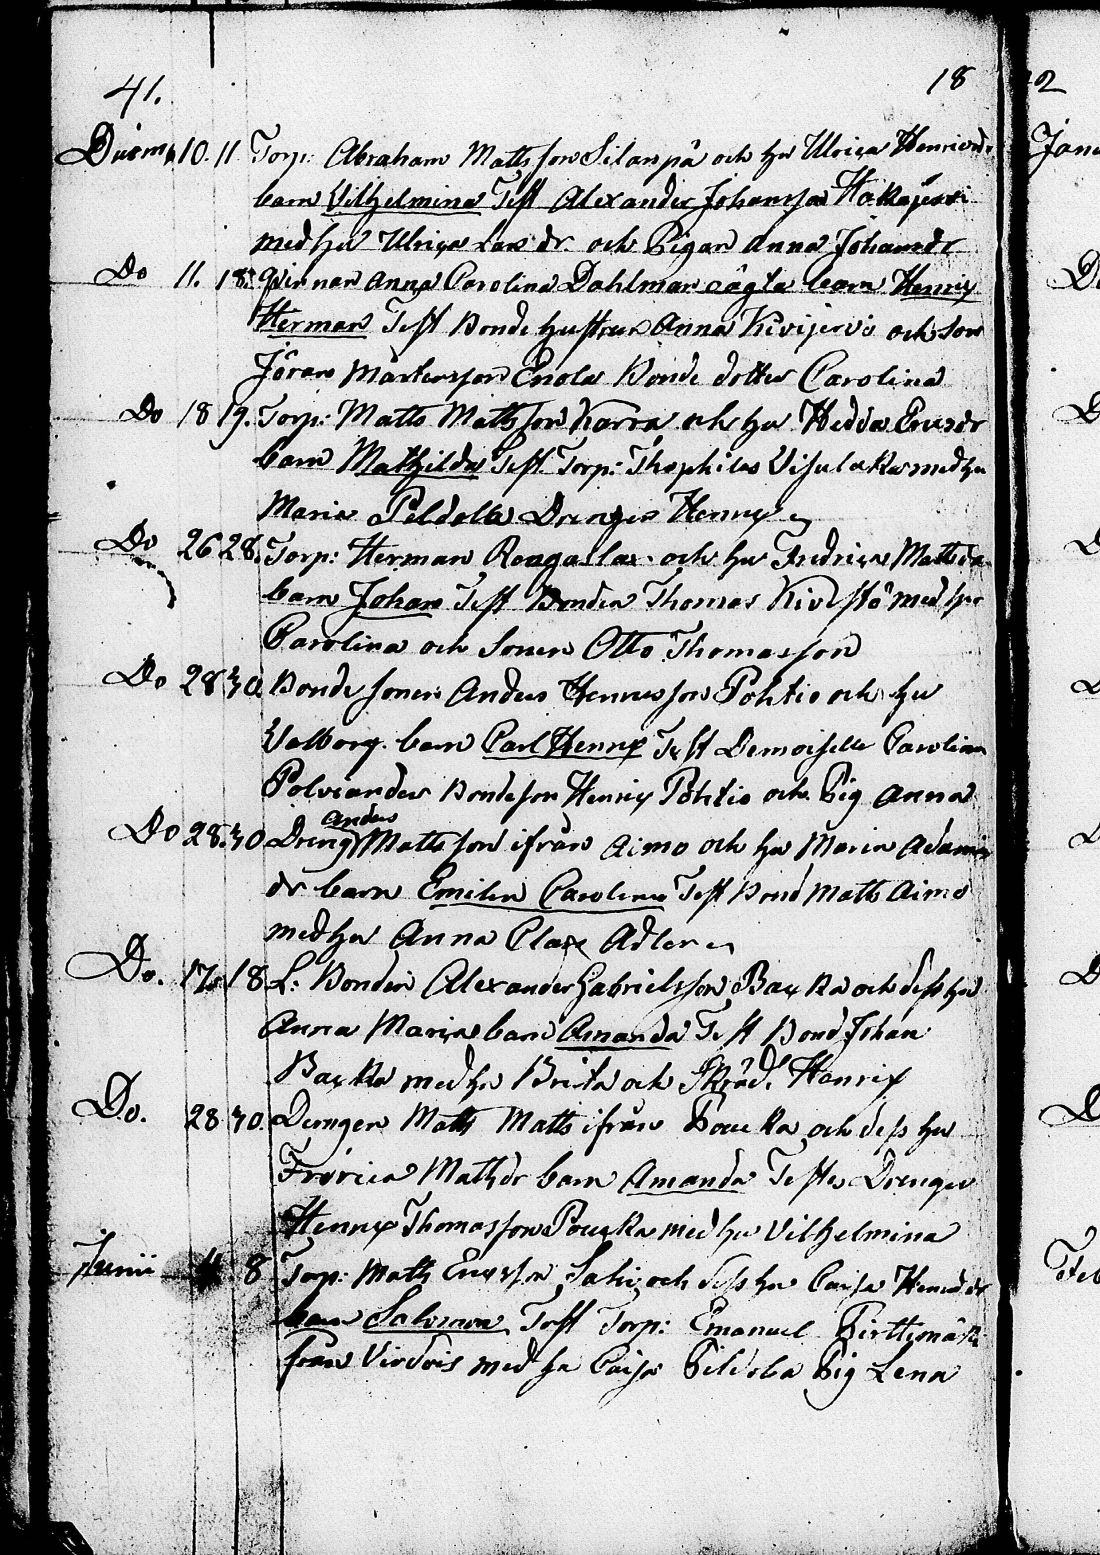 41.
18 22
Decemb 10. 11. Torp: Abraham Mattsson Silanpä och hu Ulrica Henricsdr
barn Vilhelmina Test Alexander Johansson Hakojärvi
med hu Ulrica dr och Pigan Anna Johansdr
Do 11. 18. Qvinnan Anna Carolina Dahlman oägta barn Henrix
Herman Test Bonde hustrun Anna Kivijervi och Son
Jöran Mårtensson Enola Bonde dotter Carolina
Do 18 19. Torp: Matts Mattsson Karra och hu Hedda Ericsdr
barn Mathilda Test Torp: Thephilus Visulaka med hu
Maria Peldola Drengen Henrix
Do 26 28. Torp: Herman och hu Fredrica Mattsdr
barn Johan Test Bonden Thomas Kivistö med hu
Carolina och Sonen Otto Thomasson
Do 28 30. Bonde sonen Anders Henricsson Pohtio och hu
Valborg barn Carl Henrix Test Demoiselle Carolina
Polviander Bondeson Henrix Pohtio och Pig Anna
Do 28. 30. Dreng Anders Mattsson ifrån Aimo och hu Maria Adami
dr barn Emilia Carolina Test Bond Matts Aimo
med hu Anna Adler
Do. 17. 18 L: Bonden Alexander Gabrielsson Backa och dess hu
Anna Maria barn Amanda Test Bond Johan
Backa med hu Brita och Skräd: Henrix
Do. 28 30. Drengen Matts Matts ifrån och dess hu
Mathsdr barn Amanda Testes Drengen
Henrix Thomasson med hu Vilhelmina
Junii 4 8 Torp: Matts Ericsson Sahi och dess hu Caisa Henricdr
barn Salomon Test Torp: Emanuel
från Virdois med hu Caisa Pig Lena
Janu
Do
Do
Do
Do
Do
Do
Do
Feb